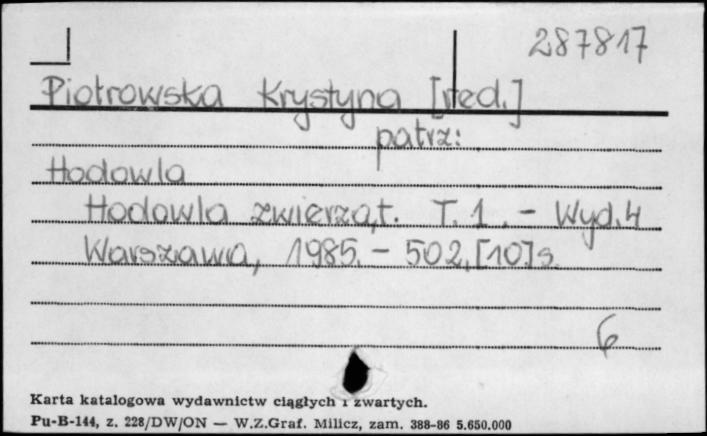 287817
Piotrowska Krystyna [red.]
patrz:
Hodowla
Hodowla zwierząt. T. 1. - Wyd. 4
Warszawa, 1985. - 502, [10] s.
6
Karta katalogowa wydawnictw ciągłych i zwartych.
Pu-B-144, z. 228/DW/ON — W.Z.Graf. Milicz, zam. 388-86 5.650.000